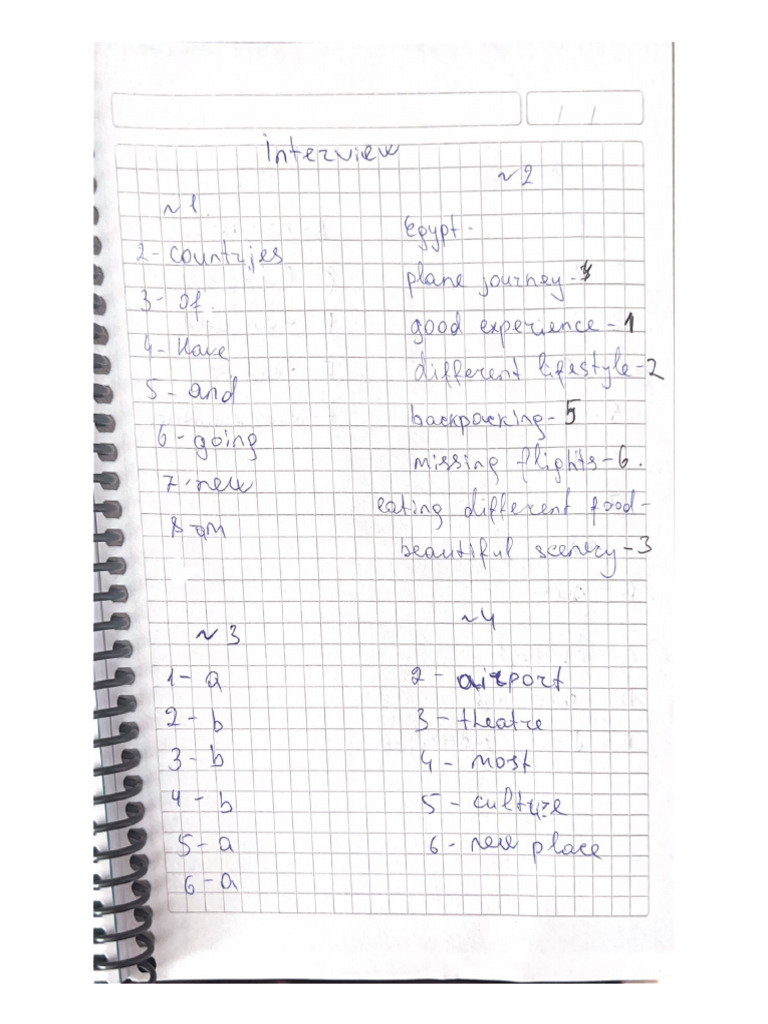 interview
~1.
2- countries
3- Of.
4- Have
5- and
6- going
7- new
8-am
~2
Egypt-
plane journey-4
good experience-1
different lifestyle-2
backpacking-5
missing flights-6.
eating different food-
beautiful scenery-3
~3
1- a
2- b
3- b
4- b
5- a
6- a
~4
2- airport
3- theatre
4- most
5- culture
6- new place